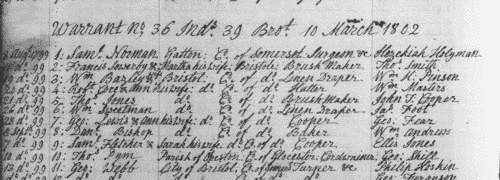 Warrant No. 36 Ind. 39 Brot. 10 March 1802
99 1: Saml. Norman Yatton Co. of Somerset Surgeon & Hezekiah Holyman
do. 99 2: Francis & Martha his wife: Bristol: Brush Maker Thos. Smith
do. 99 3: Wm. Bazley Bristol Co. of do. Linen Draper Wm. K. Pinson
do. 99 4: Robt. & Ann his wife: do. Co. of do. Hatter Wm. Masters
do. 99 5: Thos. Jones do. Co. of do. Brush Maker John T. Cooper
do. 99 6: Wm. Sweetman do. Co. of do. Linen Draper Jas. Foot
do. 99 7: Geo: Lewis & Ann his wife: do. Co. of do. Cooper Geo: Fear
Sept. 99 8: Danl. Bishop do. Co. of do. Baker Wm. Andrews
do. 99 9: Saml. Fletcher & Sarah his wife: do. Co. of do. Cooper Ellis Jones
10 do. 99 10: Thos. Pym Parish of Co. of Glocester Cordwainer Geo: Shilt
13 do. 99 11: Geo: Webb City of Bristol Co. of Turner & Philip Hoskin
Geo: Ferguson